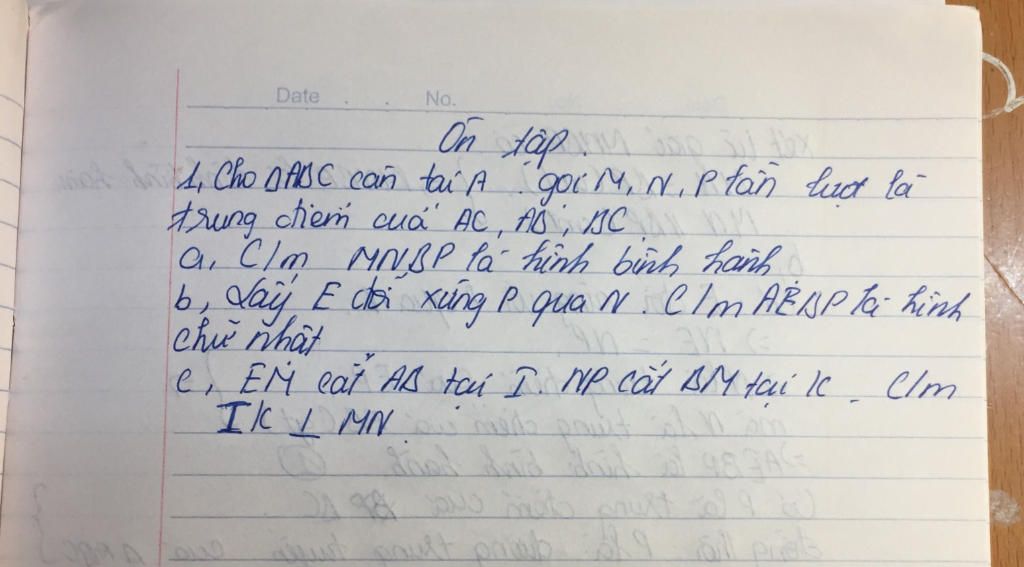 Date . . No.
Ôn tập.
1, Cho ΔABC cân tại A. gọi M, N, P lần lượt là
trung điểm của AC, AB, BC
a, C/m MNBP là hình bình hành
b, Lấy E đối xứng P qua N. C/m AEBP là hình
chữ nhật
c, EM cắt AB tại I. NP cắt BM tại K. C/m
IK ⊥ MN.